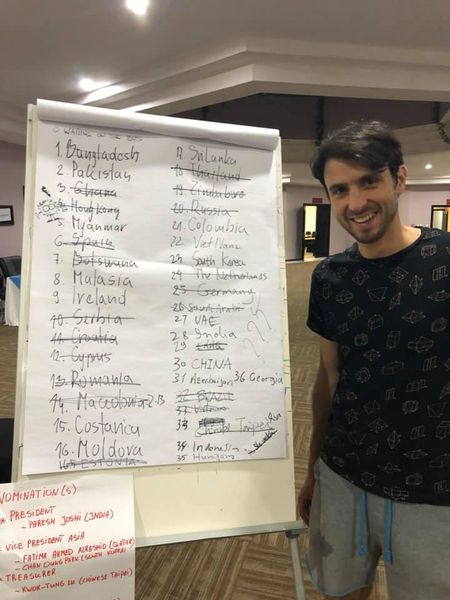 WAITING ON THE BUS
1. Bangladesh
2. Pakistan
3. Ghana
4. Hong Kong
5. Myanmar
6
7. Botswana
8. Malasia
9 Ireland
10. Serbia
11. Croatia
12. Cyprus
13. Romania
14. Macedonia
15. Costarica
16. Moldova
ESTONIA
17. Sri Lanka
18. Thailand
19. Zimbabwe
20. Russia
21. Colombia
22 VietNam
23 South Korea
24 The Netherlands
25 Germany
26 Saudi Arabia
27 UAE
28 India
29
30 CHINA
31 Azerbaijan 36 Georgia
32 BRAZIL
33 Taipei
34 Indonesia
35 Hungary
???
NOMINATION(S)
* PRESIDENT
- PARESH JOSHI (INDIA)
VICE PRESIDENT ASIA
- FATIMA AHMED ALRASHID (QATAR)
- CHAN OUNG PARK (SOUTH KOREA)
TREASURER
- KWOK-TUNG LU (CHINESE TAIPEI)